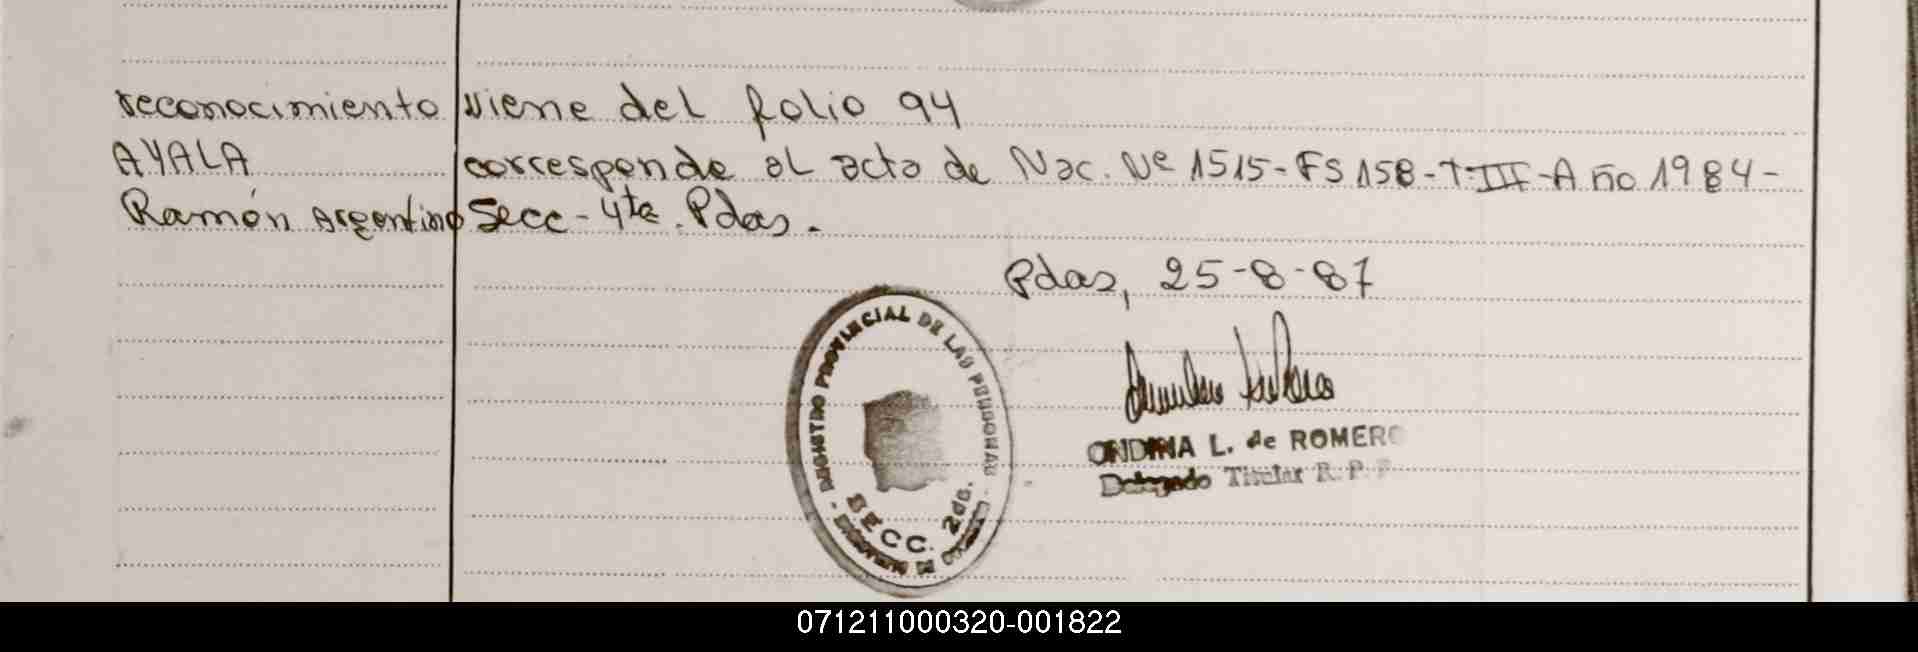 reconocimiento viene del folio 94
AYALA corresponde al acta de Nac. Nº 1515-FS 158-T-III-Año 1984-
Ramón Argentino Secc-4ta. Pdas.
Pdas, 25-8-87
REGISTRO PROVINCIAL DE LAS PERSONAS
SECC. 2da.
ONDINA L. de ROMERO
Delegado Titular R. P. P
071211000320-001822